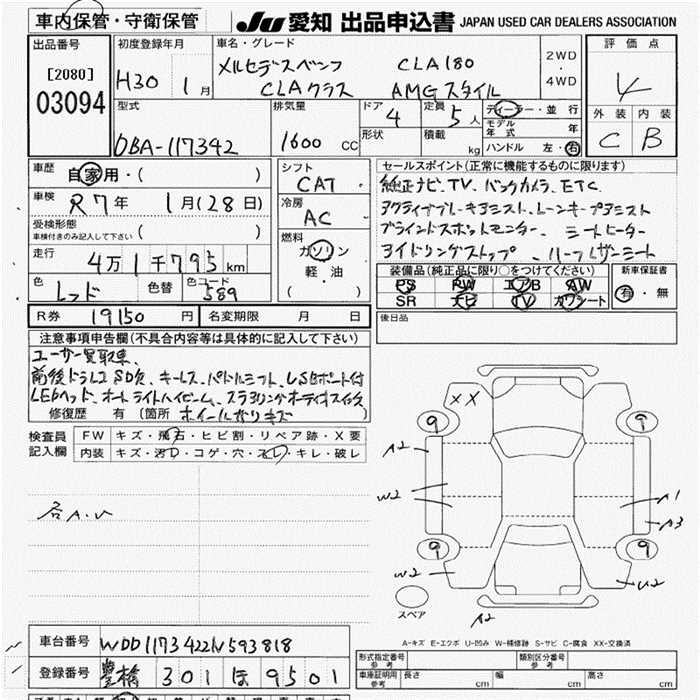 車内保管・守衛保管
JU 愛知 出品申込書 JAPAN USED CAR DEALERS ASSOCIATION
出品番号
[2080]
03094
初度登録年月
H30 年 1月
車名・グレード
メルセデスベンツ CLA180
CLAクラス AMGスタイル
2WD
・
4WD
評価点
4
外装 内装
C B
型式
DBA-117342
排気量
1600 CC
ドア
4
形状
定員
5人
積載
kg
ディーラー・並行
モデル年式 年
ハンドル 左・右
車歴
自家用・( )
車検
R7年 1月(28日)
受検形態
車検付きのみ記入して下さい ( )
走行
4万1千795km
色
レッド
色替
色コード
589
シフト
CAT
冷房
AC
燃料
ガソリン
・
軽・油
( )
セールスポイント(正常に機能するものに限ります)
純正ナビ、TV、バックカメラ、ETC、
アクティブブレーキアシスト、レーンキープアシスト
ブラインドスポットモニター、シートヒーター
アイドリングストップ、ハーフレザーシート
装備品(純正品に限り○をつけてください)
PS PW エアB AW
SR ナビ TV カワシート
新車保証書
有・無
R券 19150 円 名変期限 月 日
後日品
注意事項申告欄(不具合内容等は具体的に記入して下さい)
ユーザー買取車、
前後ドラレコSD欠、キーレス、パドルシフト、USBポート付
LEDヘッド、オートライトハイビーム、ステアリングオーディオスイッチ
修復歴 有 (箇所 ホイールガリキズ
検査員記入欄
FW キズ・飛石・ヒビ割・リペア跡・X要
内装 キズ・汚レ・コゲ・穴・スレ・キレ・破レ
各A.U
XX
9
9
A2
W2
A1
A3
9
9
W2
U2
A2
スペア
A-キズ E-エクボ U-凹み W-補修跡 S-サビ C-腐食 XX-交換済
車台番号 WDD1173422N593818
登録番号 豊橋 301 ほ 9501
形式指定番号
参考
類別区分番号
参考
車庫証明用
参考
長さ cm 幅 cm 高さ cm